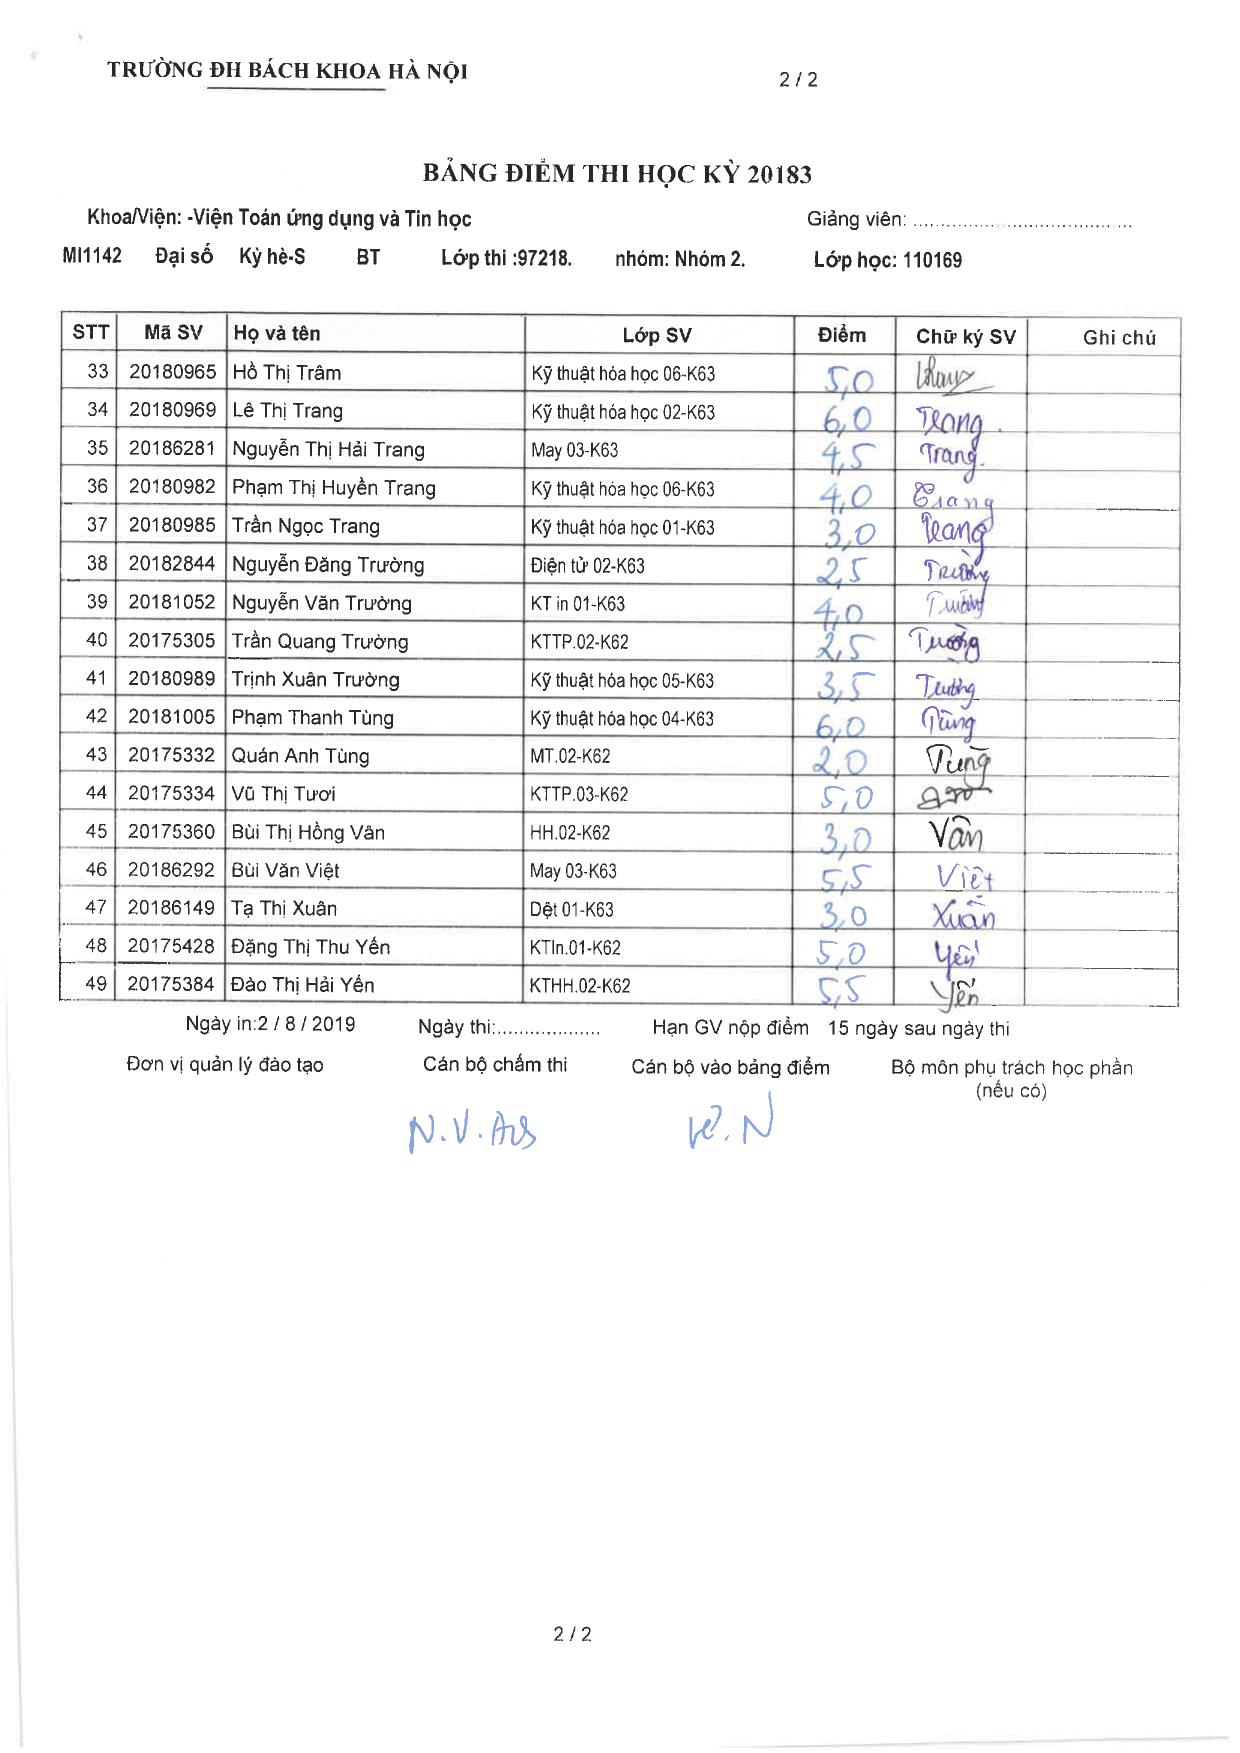 TRƯỜNG ĐH BÁCH KHOA HÀ NỘI
2 / 2
BẢNG ĐIỂM THI HỌC KỲ 20183
Khoa/Viện: -Viện Toán ứng dụng và Tin học Giảng viên: ........................................
MI1142 Đại số Kỳ hè-S BT Lớp thi :97218. nhóm: Nhóm 2. Lớp học: 110169
STT Mã SV Họ và tên Lớp SV Điểm Chữ ký SV Ghi chú
33 20180965 Hồ Thị Trâm Kỹ thuật hóa học 06-K63 5,0
34 20180969 Lê Thị Trang Kỹ thuật hóa học 02-K63 6,0 Trang
35 20186281 Nguyễn Thị Hải Trang May 03-K63 4,5 Trang
36 20180982 Phạm Thị Huyền Trang Kỹ thuật hóa học 06-K63 4,0 Trang
37 20180985 Trần Ngọc Trang Kỹ thuật hóa học 01-K63 3,0 Trang
38 20182844 Nguyễn Đăng Trường Điện tử 02-K63 2,5 Trường
39 20181052 Nguyễn Văn Trường KT in 01-K63 4,0 Trường
40 20175305 Trần Quang Trường KTTP.02-K62 2,5 Trường
41 20180989 Trịnh Xuân Trường Kỹ thuật hóa học 05-K63 3,5 Trường
42 20181005 Phạm Thanh Tùng Kỹ thuật hóa học 04-K63 6,0 Tùng
43 20175332 Quán Anh Tùng MT.02-K62 2,0 Tùng
44 20175334 Vũ Thị Tươi KTTP.03-K62 5,0
45 20175360 Bùi Thị Hồng Vân HH.02-K62 3,0 Vân
46 20186292 Bùi Văn Việt May 03-K63 5,5 Việt
47 20186149 Tạ Thị Xuân Dệt 01-K63 3,0 Xuân
48 20175428 Đặng Thị Thu Yến KTIn.01-K62 5,0 Yến
49 20175384 Đào Thị Hải Yến KTHH.02-K62 5,5 Yến
Ngày in:2 / 8 / 2019 Ngày thi:................... Hạn GV nộp điểm 15 ngày sau ngày thi
Đơn vị quản lý đào tạo Cán bộ chấm thi Cán bộ vào bảng điểm Bộ môn phụ trách học phần
(nếu có)
N.V.
2 / 2